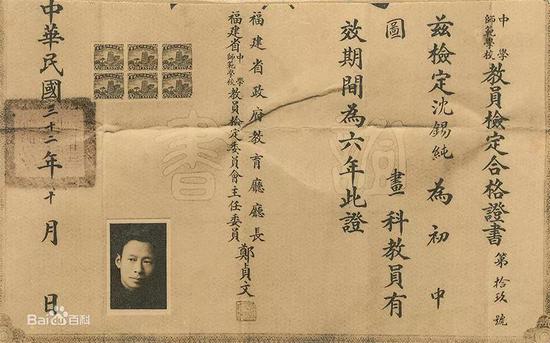 中學
師範學校
教員檢定合格證書
第拾玖號
茲檢定沈錫純為初中
圖畫科教員有
效期間為六年此證
福建省政府教育廳廳長
福建省
中學
師範學校
教員檢定委員會主任委員
鄭貞文
中華民國三十二年十月 日
Bai百科